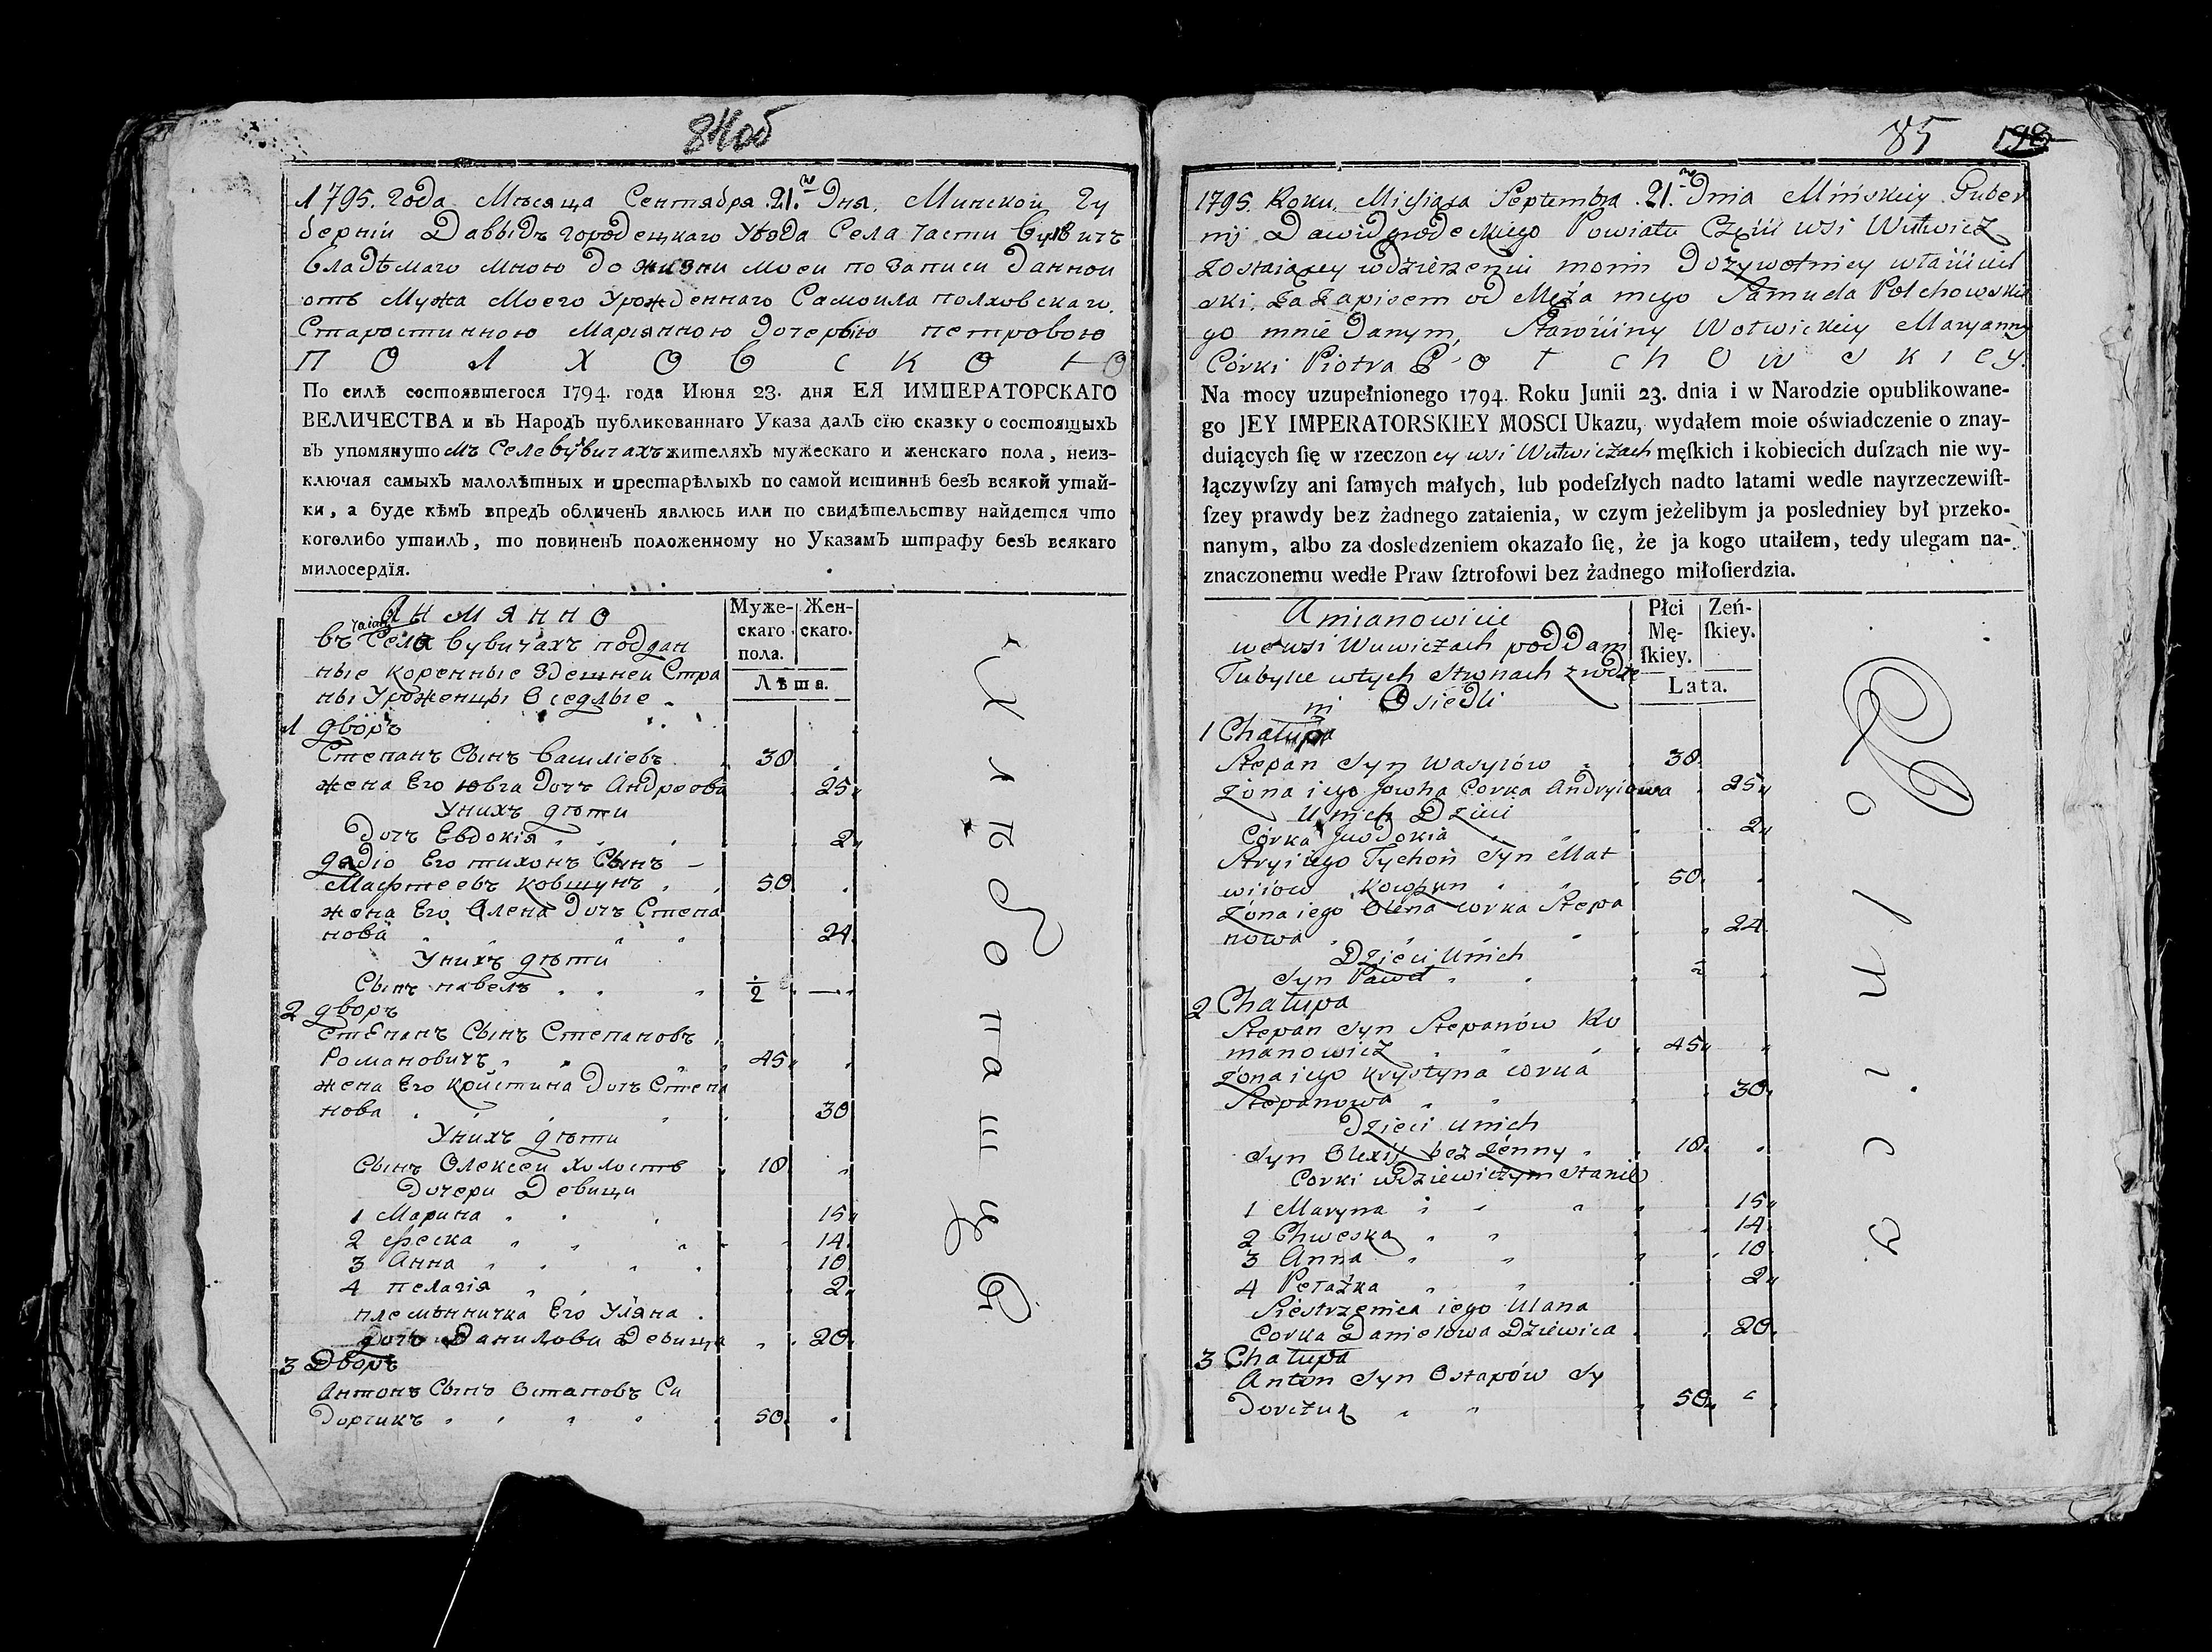 84 об
1795. Года Мѣсяца Сентября .21.го Дня. Минской Гу
берніи Давыдъ городецкаго Уѣзда Села части Вувичъ
владѣмаго мною до жизни моеи по записи данной
отъ Мужа Моего Урожденнаго Самоила полховскаго.
Старостинною Маріянною дочерью петровою
П О Л Х О В С К О Ю
По силѣ состоявшегося 1794. года Июня 23. дня ЕЯ ИМПЕРАТОРСКАГО
ВЕЛИЧЕСТВА и въ НародЪ публикованнаго Указа далЪ сїю сказку о состоящыхЪ
въ упомянутомъ Селе Вувичахъ жителяхЪ мужескаго и женскаго пола, неиз-
ключая самыхЪ малолѣтных и престарѣлыхЪ по самой истиннѣ безЪ всякой утай-
ки, а буде кѣмЪ впредЪ обличенЪ явлюсь или по свидѣтельству найдется что
коголибо утаилЪ, то повиненЪ положенному по УказамЪ штрафу безЪ всякаго
милосердїя.
Аимянно
Муже-
скаго
пола.
Жен-
скаго.
Лѣта.
въ Села Вувичахъ поддан
ные коренные Здешнеи Стра
ны Уроженцы Оседлые
1 дворъ
Степанъ Сынъ Василіевъ 30
жена Его Ювга Дочъ Андреева 25
Унихъ дѣти
Дочъ Евдокія 2
дядіо Его тихонъ Сынъ
Матфеевъ Ковшунъ 50
жена Его Олена Дочъ Степа
нова 24
Унихъ дѣти
Сынъ павелъ 1/2
2 дворъ
Степанъ Сынъ Степановъ
Романовичъ 45
жена Его Кристина Дочъ Степа
нова 30
Унихъ дѣти
Сынъ Олексеи Холостъ 10
Дочери Девици
1 Марина 15
2 феска 14
3 Анна 10
4 пелагія 2
племѣнничка Его Уляна
дочъ Данилова Девица 20
3 Дворъ
Антонъ Сынъ Остаповъ Си
дорчикъ 50
85
193
1795. Roku. Miesiąca Septembra .21.go Dnia Mińskiey Guber
nij Dawidgrodeckiego Powiatu Części wsi Wuwicz
zostaiącey wdzierzeniu moim Dożywotniey właścicil
ski. za zapisem od Męża mego Samuela Połchowskie
go mnie danym, Starościny Wołwickiey Maryanny
Córki Piotra P o ł c h o w s k i e y.
Na mocy uzupełnionego 1794. Roku Junii 23. dnia i w Narodzie opublikowane-
go JEY IMPERATORSKIEY MOSCI Ukazu, wydałem moie oświadczenie o znay-
duiących ſię w rzeczoney wsi Wuwiczach męſkich i kobiecich duſzach nie wy-
łączywſzy ani ſamych małych, lub podeſzłych nadto latami wedle nayrzeczewiſt-
ſzey prawdy bez żadnego zataienia, w czym jeżelibym ja posledniey był przeko-
nanym, albo za dosledzeniem okazało ſię, że ja kogo utaiłem, tedy ulegam na-
znaczonemu wedle Praw ſztrofowi bez żadnego miłoſierdzia.
Amianowicie
Płci
Mę-
ſkiey.
Zeń-
ſkiey.
Lata.
we wsi Wuwiczach poddani
Tubylce wtych stronach zrodze
ni Osiedli
1 Chałupa
Stepan Syn Wasylów 30
Żona iego Jowha Corka Andryiowa 25
U nich Dzieci
Córka Jewdokia 2
Stryi iego Tychoń Syn Mat
wiiow Kowszun 50
Żona iego Olena corka Stepa
nowa 24
Dzieci Unich
Syn Paweł 1/2
2 Chałupa
Stepan Syn Stepanów Ro
manowicz 45
Żona iego Krystyna corka
Stepanowa 30
Dzieci unich
Syn Olexij bez żenny 10
Corki wdziewiczym stanie
1 Maryna 15
2 Chweska 14
3 Anna 10
4 Pełażka 2
Siestrzenica iego Ulana
Corka Daniełowa Dziewica 20
3 Chałupa
Anton Syn Ostapów Sy
dorczuk 50
Хлѣбопашцы
Rolnicy